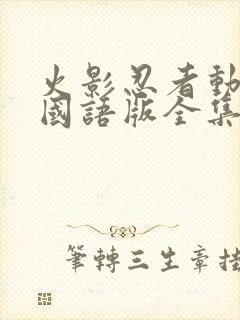 火影忍者動
國語版全集
筆轉三生章挂